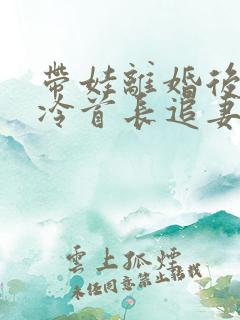 帶娃離婚後
冷首長追妻
雲上孤煙
未经同意禁止搭我